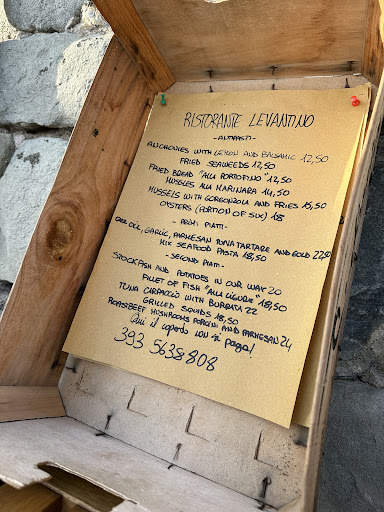 RISTORANTE LEVANTINO
- ANTIPASTI -
ANCHOVIES WITH LEMON AND BALSAMIC 12,50
FRIED SEAWEEDS 12,50
FRIED BREAD "ALLA PORTOFINO" 12,50
MUSSLES ALLA MARINARA 14,50
MUSSELS WITH GORGONZOLA AND FRIES 15,50
OYSTERS (PORTION OF SIX) 18
- PRIMI PIATTI -
OIL, GARLIC, PARMESAN TUNA TARTARE AND GOLD 22,50
MIX SEAFOOD PASTA 18,50
- SECOND PIATTI -
STOCKFISH AND POTATOES IN OUR WAY 20
FILLET OF FISH "ALLA LIGURE" 18,50
TUNA CARPACCIO WITH BURRATA 22
GRILLED SQUIDS 18,50
ROASTBEEF MUSHROOMS PORCINI AND PARMESAN 24
Qui il coperto non si paga!
393 5638808